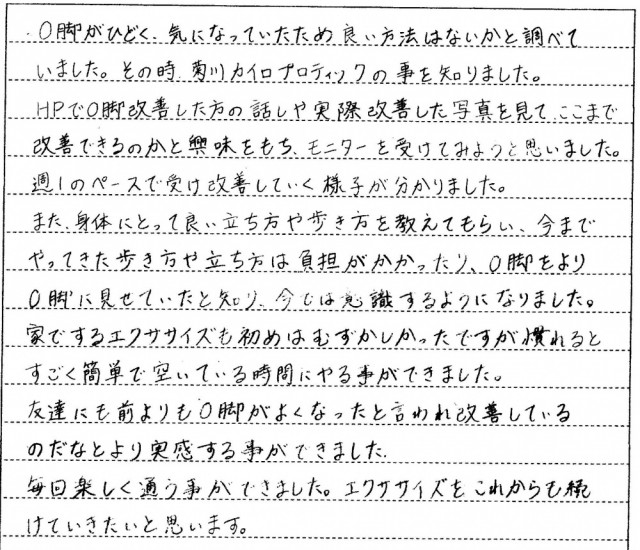 O脚がひどく、気になっていたため良い方法はないかと調べて
いました。その時、菊川カイロプロティックの事を知りました。
HPでO脚改善した方の話しや実際改善した写真を見て、ここまで
改善できるのかと興味をもち、モニターを受けてみようと思いました。
週1のペースで受け改善していく様子が分かりました。
また、身体にとって良い立ち方や歩き方を教えてもらい、今まで
やってきた歩き方や立ち方は負担がかかったり、O脚をより
O脚に見せていたと知り、今では意識するようになりました。
家でするエクササイズも初めはむずかしかったですが慣れると
すごく簡単で空いている時間にやる事ができました。
友達にも前よりもO脚がよくなったと言われ改善している
のだなとより実感する事ができました。
毎回楽しく通う事ができました。エクササイズをこれからも続
けていきたいと思います。